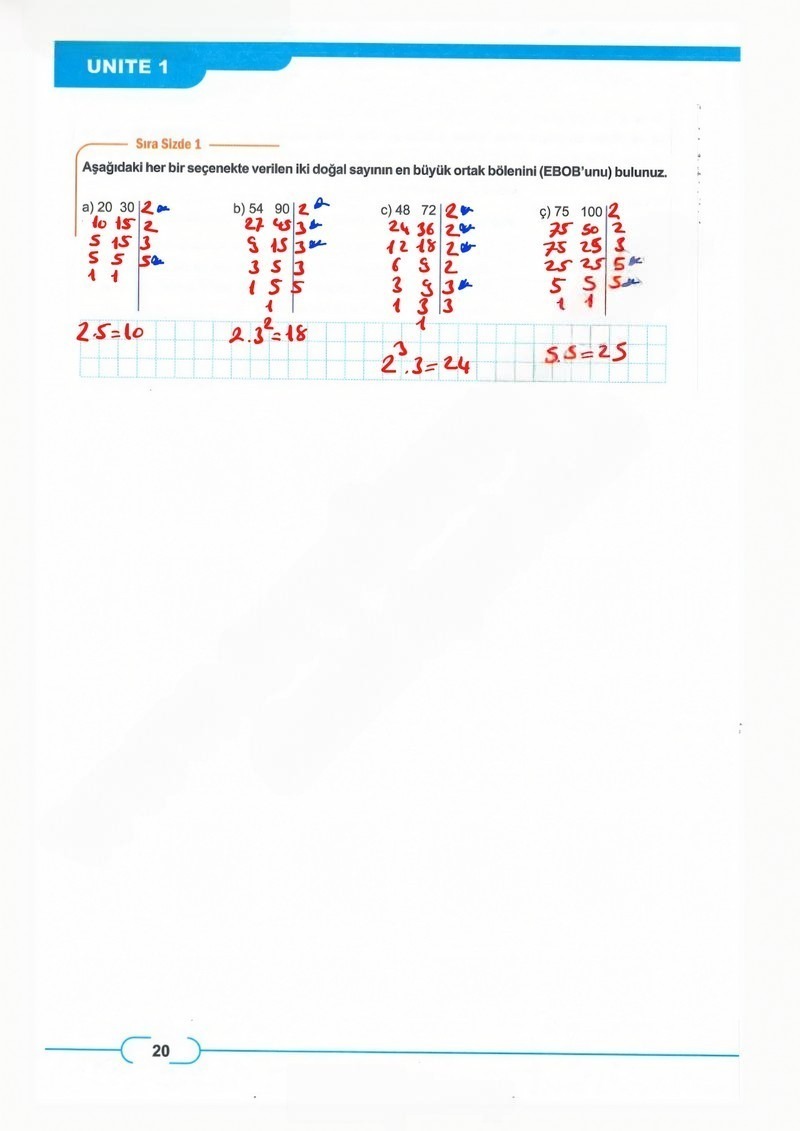 UNITE 1
Sıra Sizde 1
Aşağıdaki her bir seçenekte verilen iki doğal sayının en büyük ortak bölenini (EBOB'unu) bulunuz.
a) 20 30 | 2
10 15 | 2
5 15 | 3
5 5 | 5
1 1
2.5=10
b) 54 90 | 2
27 45 | 3
9 15 | 3
3 5 | 3
1 5 | 5
1
2.3²=18
c) 48 72 | 2
24 36 | 2
12 18 | 2
6 9 | 2
3 9 | 3
1 3 | 3
1
2³.3=24
ç) 75 100 | 2
75 50 | 2
75 25 | 3
25 25 | 5
5 5 | 5
1 1
5.5=25
20